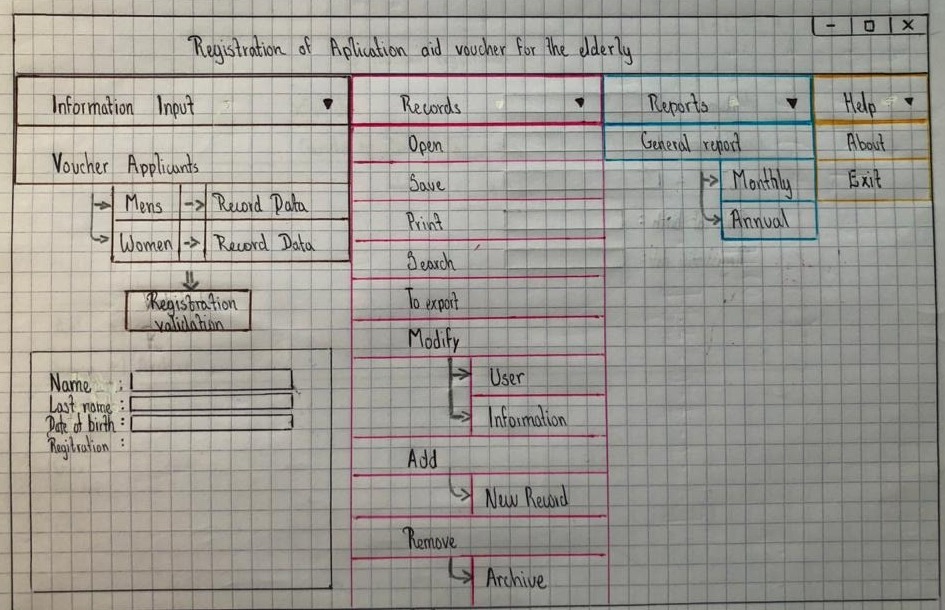 Registration of Aplication aid voucher for the elderly
Information Input
Voucher Applicants
Mens -> Record Data
Women -> Record Data
Registration
validation
Name :
Last name :
Date of birth :
Regitration :
Records
Open
Save
Print
Search
To export
Modify
User
Information
Add
New Record
Remove
Archive
Reports
General report
Monthly
Annual
Help
About
Exit